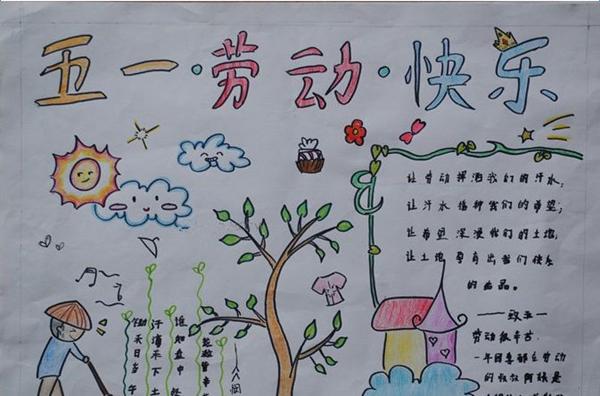 五一·劳动·快乐
让劳动挥洒我们的汗水;
让汗水播种我们的希望;
让希望深浸我们的土地;
让土地孕育出我们快乐
的品。
——致五一
劳动很辛苦
一年四季都在劳动
的叔叔阿姨是
锄禾日当午
汗滴禾下土
谁知盘中
粒粒皆辛